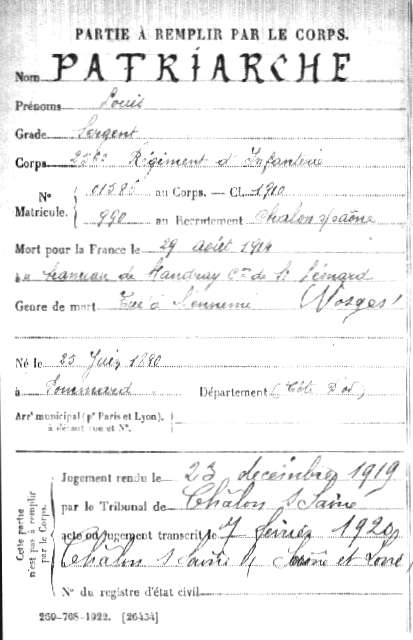 PARTIE À REMPLIR PAR LE CORPS.
Nom PATRIARCHE
Prénoms Louis
Grade Sergent
Corps 256e Régiment d'Infanterie
N° Matricule. 01585 au Corps. — Cl. 1910
990 au Recrutement Chalon s/Saône
Mort pour la France le 29 août 1914
à de Mandray Cne de St Léonard
Genre de mort Tué à l'ennemi (Vosges)
Né le 23 Juin 1890
à Pommard Département (Côte d'or)
Arrt municipal (pr Paris et Lyon),
à défaut rue et N°.
Cette partie n'est pas à remplir par le Corps.
Jugement rendu le 23 décembre 1919
par le Tribunal de Châlon s/Saône
acte ou jugement transcrit le 7 février 1920
Châlon s/Saône, Saône et Loire
N° du registre d'état civil
260-708-1922. [26434]